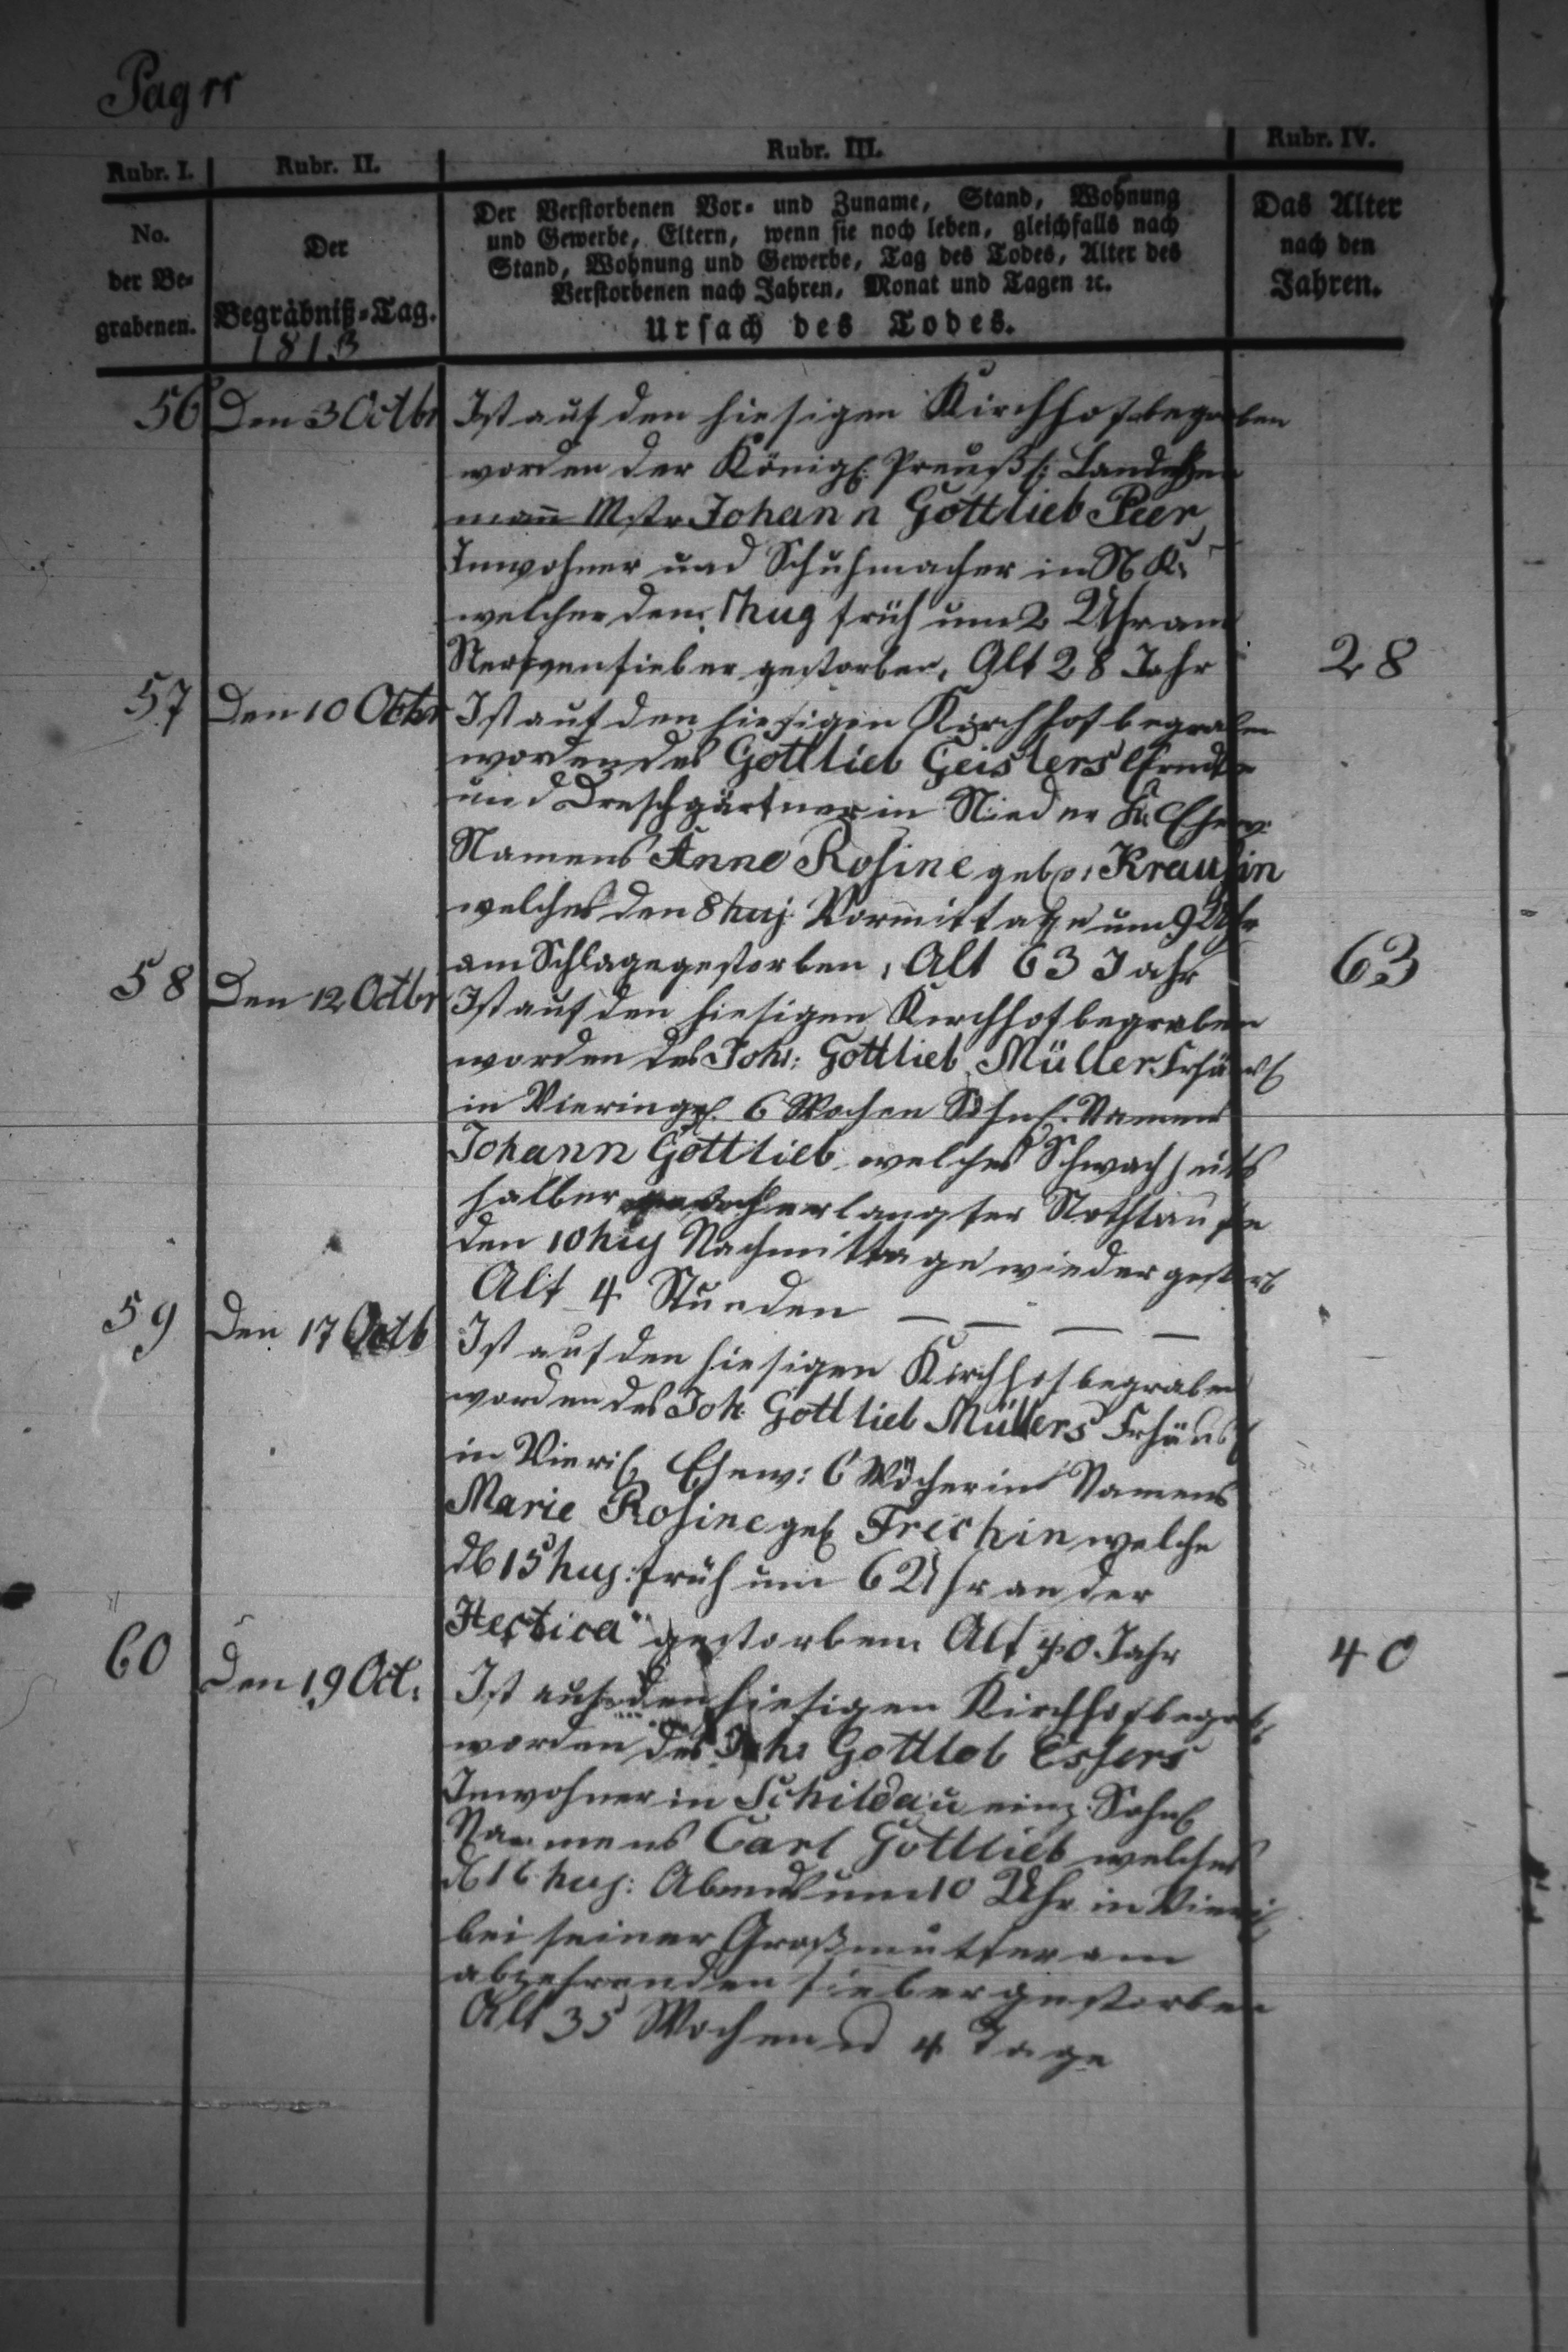 Pag rr
Rubr. I. Rubr. II. Rubr. III. Rubr. IV.
No. der Be- grabenen.
Der Begräbniß-Tag.
1813
Der Verstorbenen Vor- und Zuname, Stand, Wohnung
und Gewerbe, Eltern, wenn sie noch leben, gleichfalls nach
Stand, Wohnung und Gewerbe, Tag des Todes, Alter des
Verstorbenen nach Jahren, Monat und Tagen ꝛc.
Ursach des Todes.
Das Alter
nach den
Jahren.
56 Den 3 Octbr Ist auf den hiesigen Kirchhof begraben
worden der Königl: Preußs:
mañ Mstr Johann Gottlieb Peer,
Inwohner und Schuhmacher in N K.
welcher den 1 hug früh um 2 Uhr am
Nervenfieber gestorben, Alt 28 Jahr 28
57 Den 10 Octbr Ist auf den hiesigen Kirchhof begraben
worden des Gottlieb Geislers
und Dreschgärtner in Nieder K. Ehew:
Namens Anne Rosine gebo: Krausin
welches den 8 huj. Vormittage um 9 Uhr
am Schlage gestorben, Alt 63 Jahr 63
58 Den 12 Octbr Ist auf den hiesigen Kirchhof begraben
worden des Joh: Gottlieb Müller Frhäusl
in Vieringl. 6 Wochen Söhnl. Namens
Johann Gottlieb welches Schwachheits
halber erlangter Nothtaufe
den 10 huj Nachmittage wieder gestorb
Alt 4 Stunden — — — —
59 Den 17 Octb Ist auf den hiesigen Kirchhof begraben
worden des Joh. Gottlieb Müllers Frhäusl
in Vieril Ehew: 6 Wöcherin Namens
Marie Rosine geb Frechin welche
d 15 huj: früh um 6 Uhr an der
Hectica gestorben Alt 40 Jahr 40
60 Den 19 Oct: Ist auf den hiesigen Kirchhof begrab:
worden des Joh: Gottlob Essers
Inwohner in Schildau einz. Sohnl
Nammens Carl Gottlieb welches
d 16 huj: Abends um 10 Uhr in Vieril
bei seiner Großmutter am
abzehrenden fieber gestorben
Alt 35 Wochen u 4 Tage